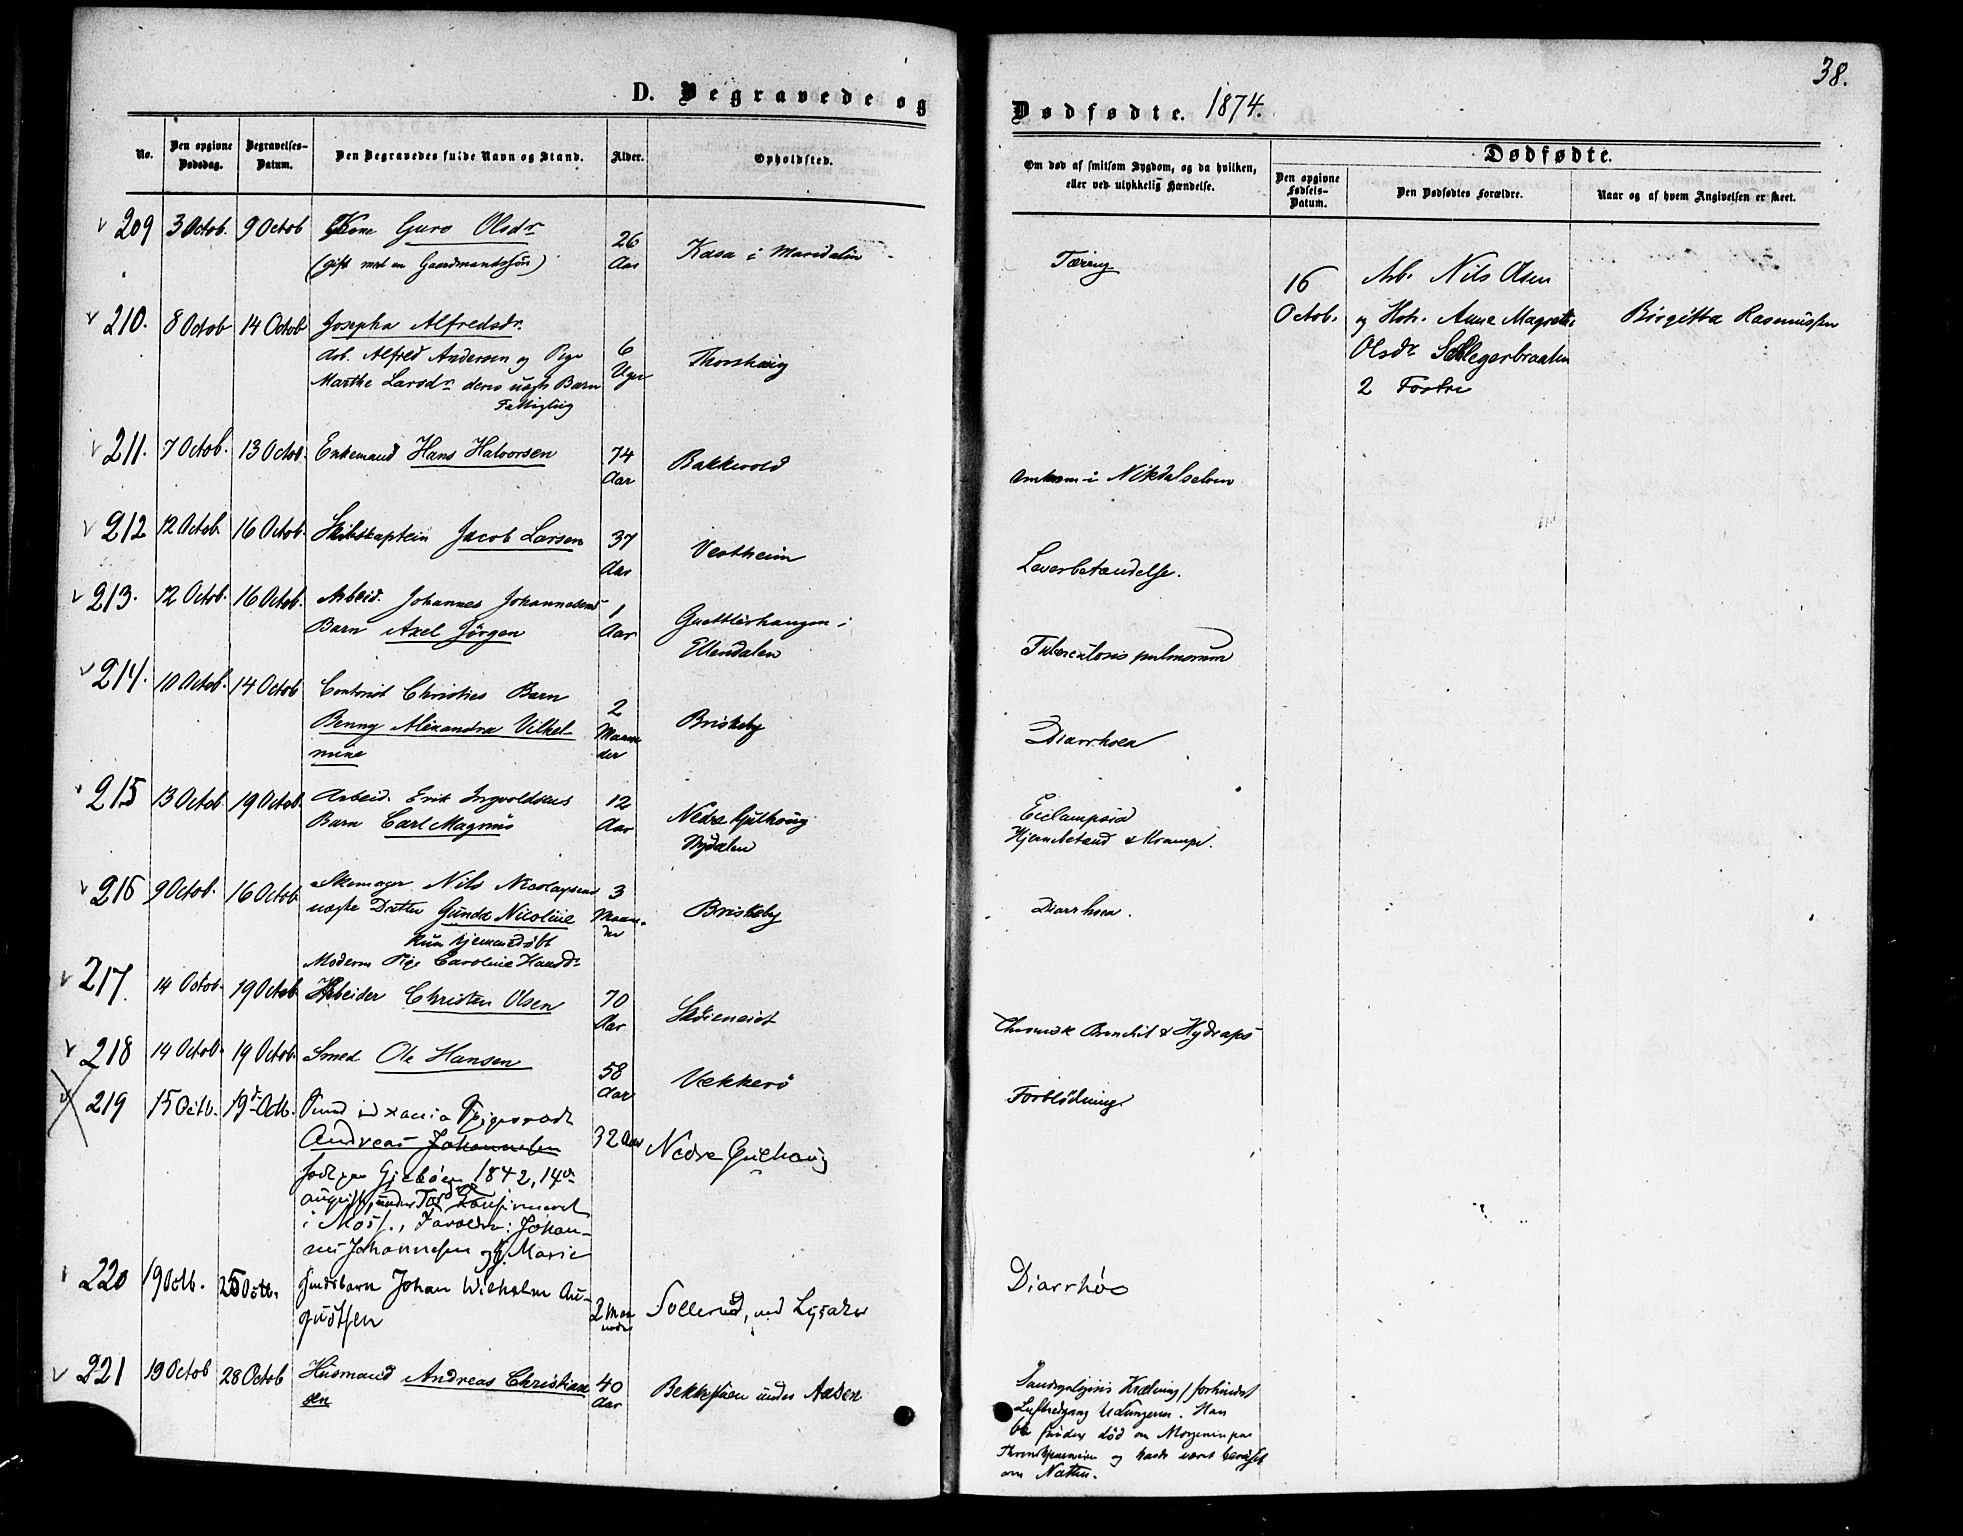 38.
D. Begravede og
Dødfødte. 1874.
No.
Den opgivne Dødsdag.
Begravelses-Datum.
Den Begravedes fulde Navn og Stand.
Alder.
Opholdsted.
Om død af smitsom Sygdom, og da hvilken, eller ved ulykkelig Hændelse.
Dødfødte.
Den opgivne Fødsels-Datum.
Den Dødfødtes Forældre.
Naar og af hvem Angivelsen er skeet.
209 3 Octob. 9 Octob Kone Guro Olsdr 26 Aar Kasa i Maridalen Tæring
(gift med en Gaardmandssøn)
16 Octob. Arb. Nils Olsen
og Hstr. Anne Magrethe
Olsdr
2 Fostre
Birgitta Rasmussen
210. 8 Octob 14 Octob Josepha Alfredsdr. 6 Uger Thorshaug
Arb. Alfred Andersen og Pige
Marthe Larsdr deres uægte Barn
Fattiglig
211. 7 Octob. 13 Octob. Enkemand Hans Halvorsen 74 Aar Bakkevold omkom i
212 12 Octob. 16 Octob. Skibskaptein Jacob Larsen 37 Aar Vestheim Leverbetændelse.
213. 12 Octob. 16 Octob. Arbeid. Johannes Johannesens 1 Aar
Barn Axel Jørgen Ellendalen Tuberculosis pulmonum
214. 10 Octob. 14 Octob Christies Barn 2 Maaneder Briskeby Diarrhoea
Benny Alexandra Vilhel-
mine
215 13 Octob 19 Octob. Arbeid. Erik Ingvoldsens 12 Aar Nedre Gulhaug Eclampsia
Barn Carl Magnus Nydalen Hjernebetænd & Krampe.
216 9 Octob. 16 Octob Skomager Nils Nicolaysens 3 Maaneder Briskeby Diarrhoea.
uægte Datter Gunda Nicoline
kun hjemmedøbt
Moderen Pige Caroline Hansdr
217. 14 Octob. 19 Octob Arbeider Christen Olsen 70 Aar Chronisk Bronchit & Hydrops
218 14 Octob. 19 Octob. Smed Ole Hansen 58 Aar Vækkerø Forblødning
219 15 Octb. 19de Octb.
Andreas Johannesen 32 Aar Nedre Gulhaug
født 1842, 14de
august, Confirmeret
i Moss., Forældre: Johan-
nes Johannesen og Marie
220 19 Octb. 25 Octb. Johan Wilhelm Au-
gustsen 2 Maaneder Sollerud, ved Lysaker Diarrhøe
221 19 Octob 28 Octob Husmand Andreas Christian
sen 40 Aar under Aasen
forhindret
Luftadgang Lungerne. Han
blev funden død om Morgenen paa
og havde været beruset
om Natten.